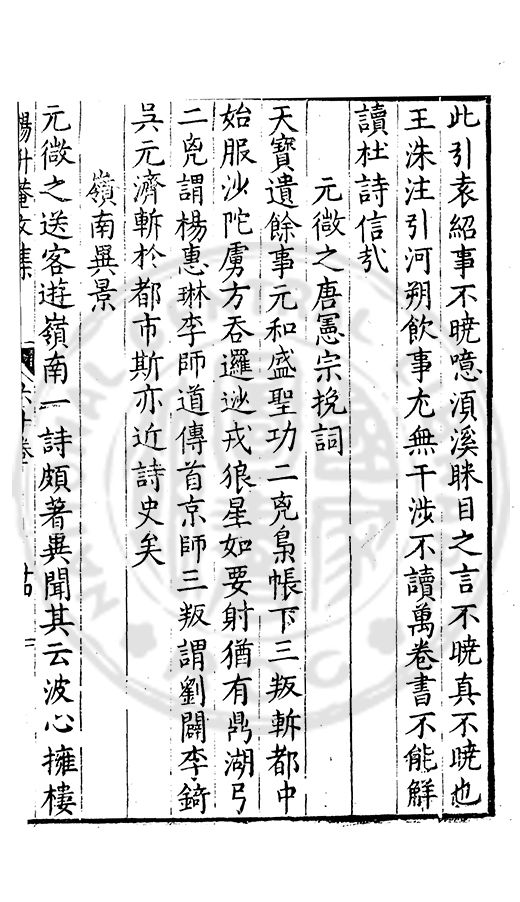 此引袁紹事不曉噫湏溪眯目之言不曉真不曉也
王洙注引河朔飲事尤無干涉不讀萬卷書不能觧
讀杜詩信㢤
元微之唐憲宗挽詞
天寳遺餘事元和盛聖功二兇梟帳下三叛斬都中
始服沙陀虜方吞邏逤戎狼星如要射猶有鼎湖弓
二兇謂楊惠琳李師道傳首京師三叛謂劉闢李錡
吳元濟斬於都市斯亦近詩史矣
嶺南異景
元微之送客遊嶺南一詩頗著異聞其云波心擁樓
楊升菴文集
六十卷